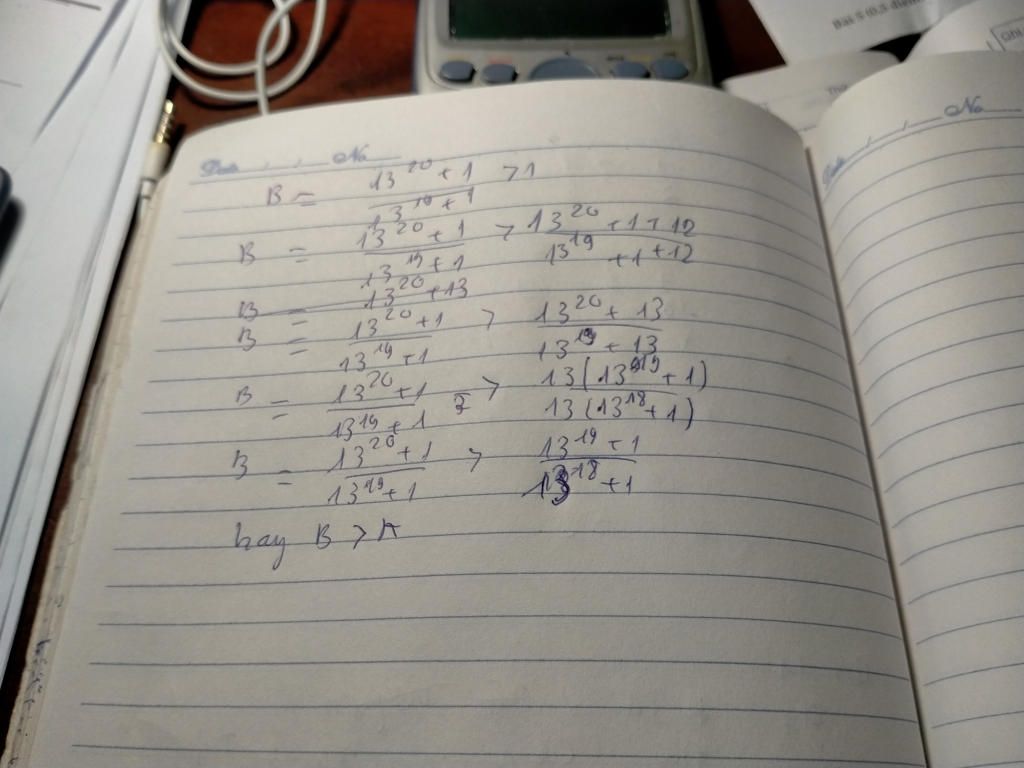 Bài 5 (0,5 điểm
Ghi
Date . / . / . No
No
B = 13^20 + 1 / 13^19 + 1 > 1
B = 13^20 + 1 / 13^19 + 1 > 13^20 + 1 + 12 / 13^19 + 1 + 12
B = 13^20 + 13
B = 13^20 + 1 / 13^19 + 1 > 13^20 + 13 / 13^19 + 13
B = 13^20 + 1 / 13^19 + 1 > 13(13^19 + 1) / 13(13^18 + 1)
B = 13^20 + 1 / 13^19 + 1 > 13^19 + 1 / 13^18 + 1
hay B > A